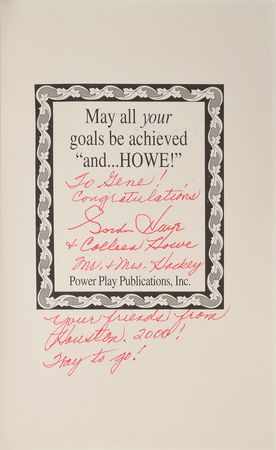 May all your
goals be achieved
"and...HOWE!"
To Gene!
Congratulations
Gordie Howe
& Colleen Howe
Mr. & Mrs. Hockey
Power Play Publications, Inc.
Your friends from
Houston. 2000!
Way to go!